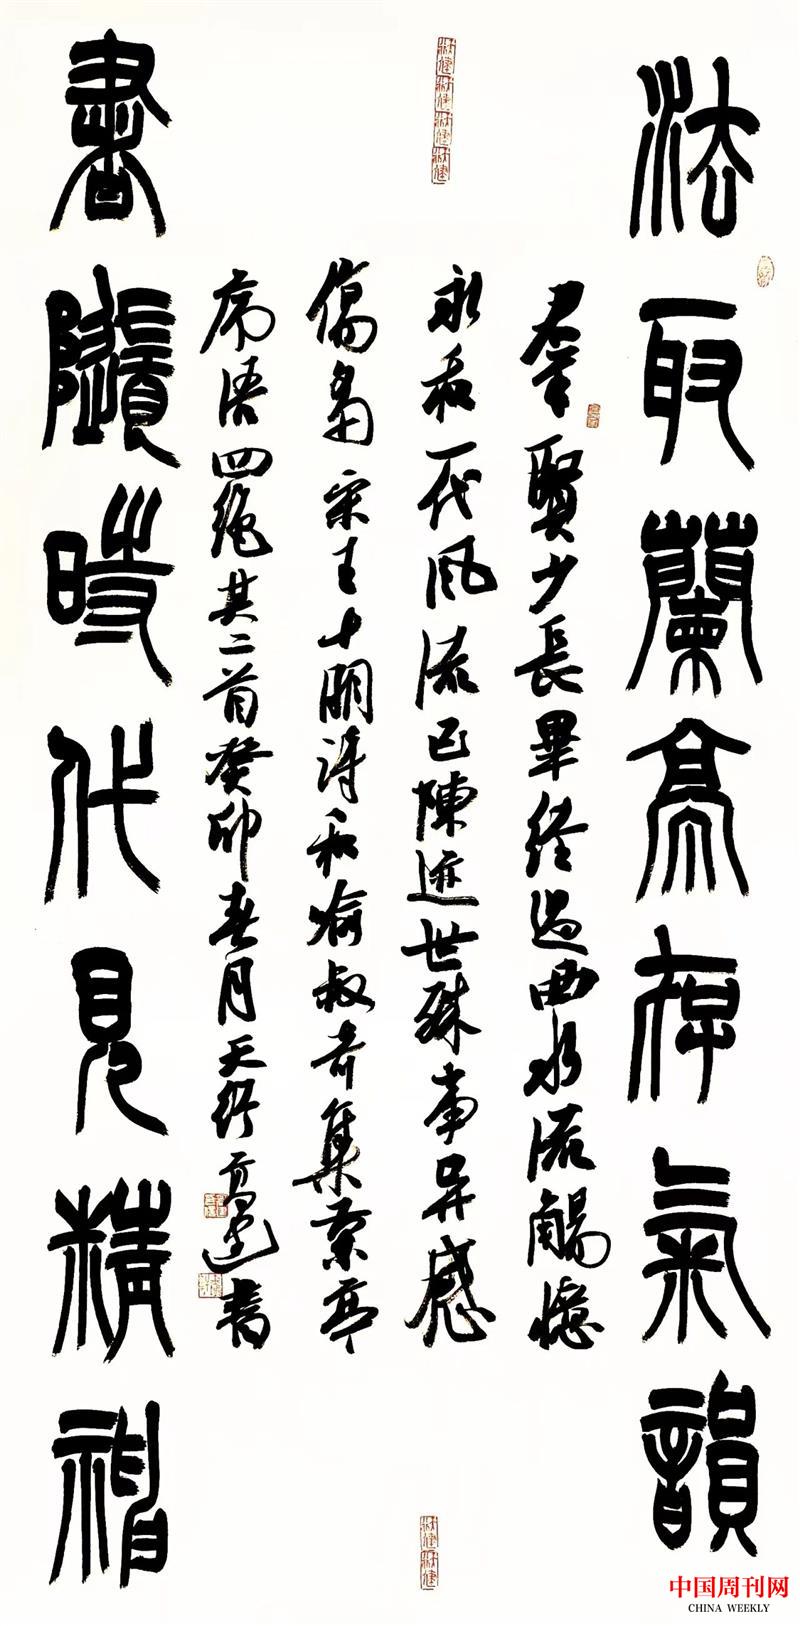 法取蘭亭存氣韻
羣賢少長畢經過曲水流觴憶
永和一代風流已陳迹世殊事異感
傷多宋王十朋詩和喻叔奇集蘭亭
序語四絶其二首癸卯春月天行書
書隨時代見精神
中国周刊网
CHINA WEEKLY